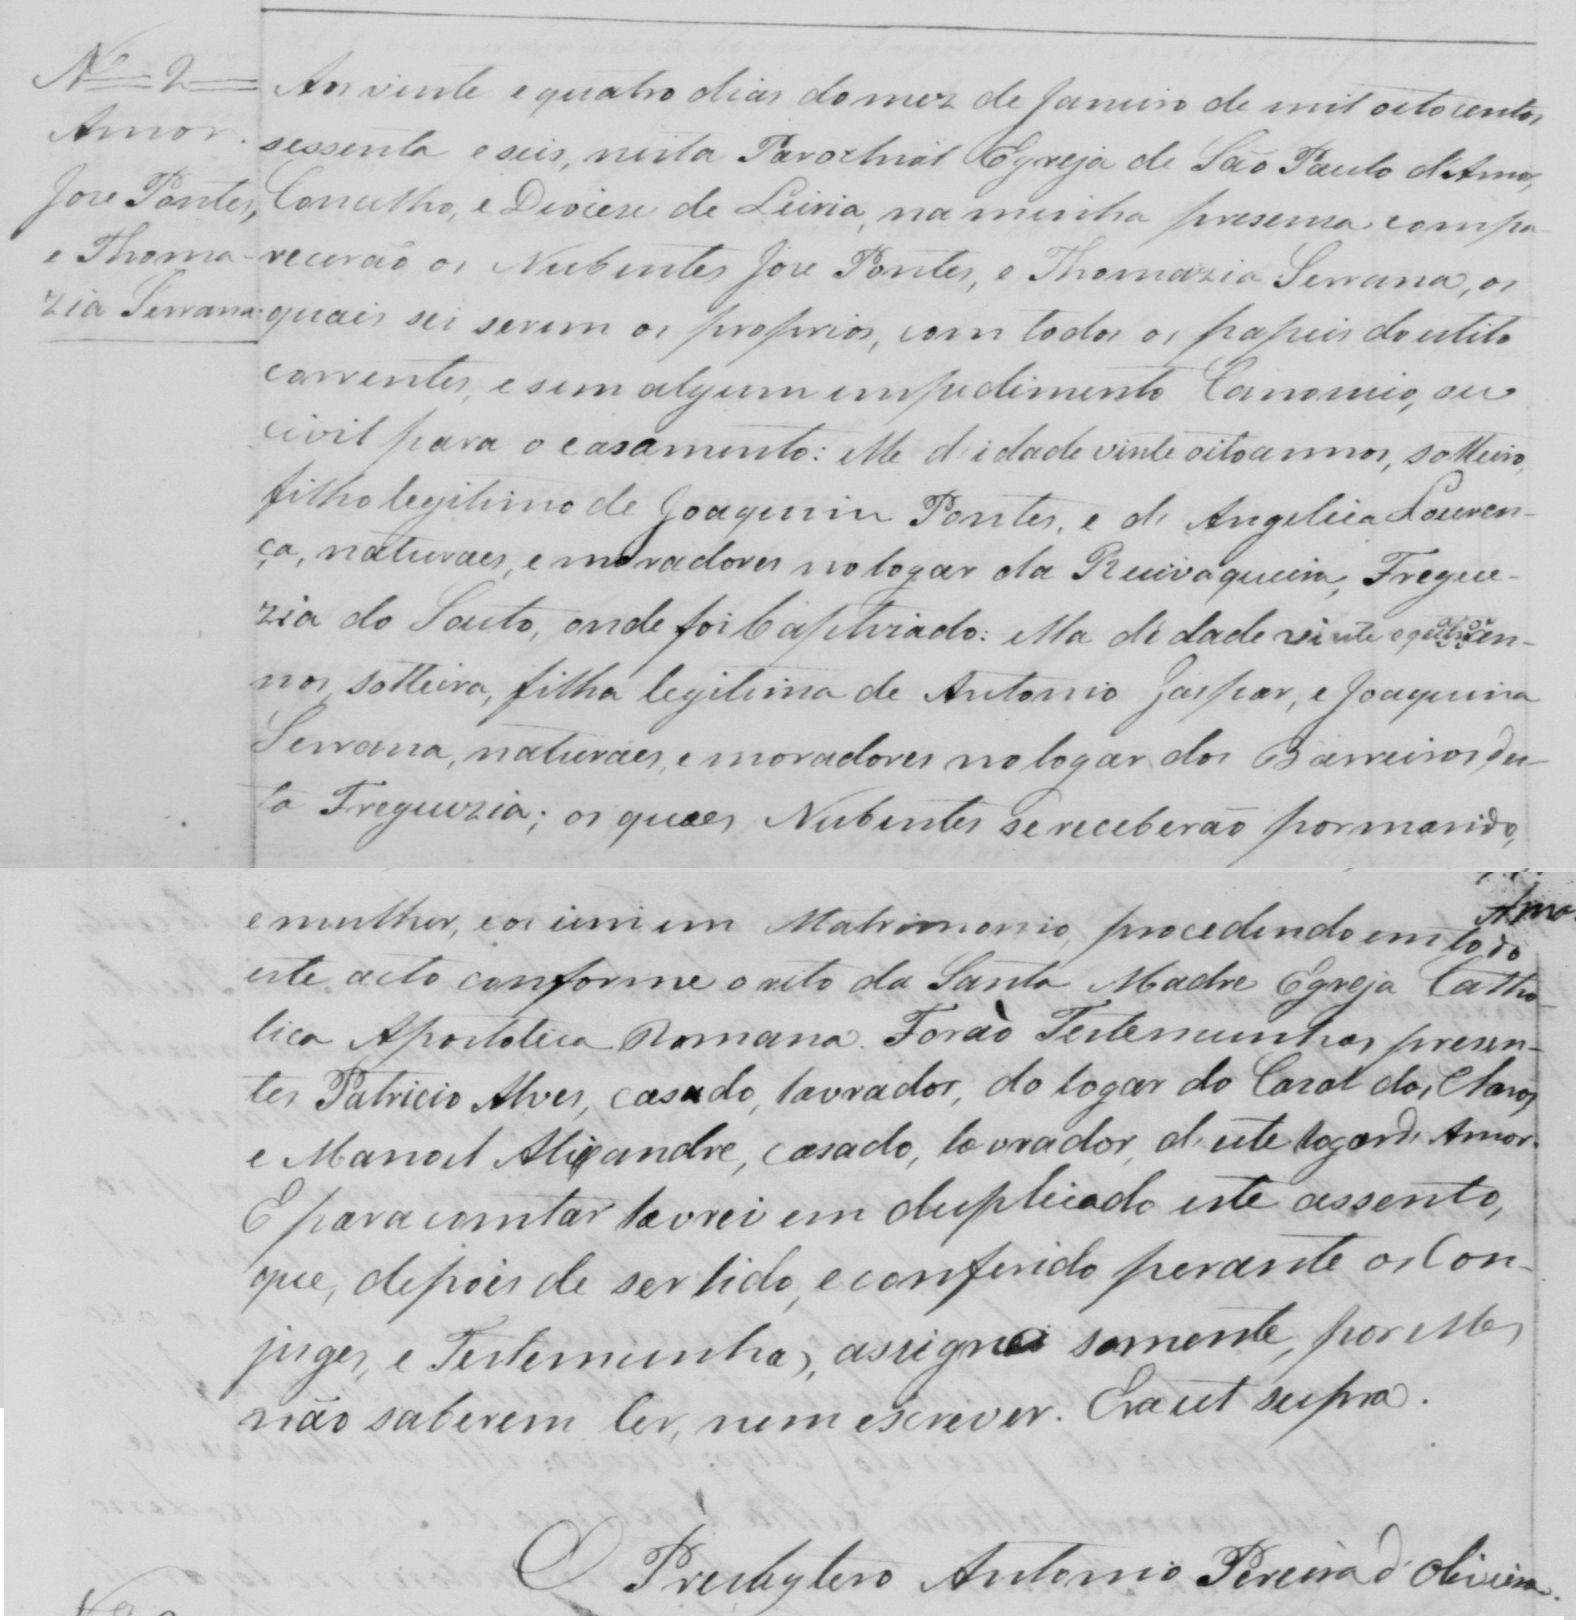 Nº 2
Amor.
Jose Pontes,
e Thoma-
zia Serrana
Aos vinte e quatro dias do mez de Janeiro de mil oitocentos
sessenta e seis, nesta Parochial Egreja de São Paulo d'Amor,
Concelho, e Diocese de Leiria, na minha presensa compa-
recerão os Nubentes Jose Pontes, e Thomazia Serrana, os
quais sei serem os proprios, com todos os papeis do estilo
correntes, e sem algum impedimento Canonico, ou
civil para o casamento: elle de idade vinte oito annos, solteiro,
filho legitimo de Joaquim Pontes, e de Angelica Louren-
ça, naturaes, e moradores no logar da Ruivaqueira, Fregue-
zia do Souto, onde foi baptizado: ella de idade vinte e quatro an-
nos, solteira, filha legitima de Antonio Gaspar, e Joaquina
Serrana, naturaes, e moradores no logar dos Barreiros, des-
ta Freguezia; os quaes Nubentes se receberão por marido,
Amor
e mulher, e os uni em Matrimonio, procedendo em todo
este acto conforme o rito da Santa Madre Egreja Catho-
lica Apostolica Romana. Forão Testemunhas presen-
tes Patricio Alves, casado, lavrador, do logar do Casal dos Claros
e Manoel Alixandre, casado, lavrador, d'este logar d'Amor.
E para constar lavrei em duplicado este assento,
que, depois de ser lido, e conferido perante os Con-
juges, e Testemunhas, assignei somente, por elles
não saberem ler, nem escrever. Era ut supra.
O Presbytero Antonio Pereira d'Oliveira.